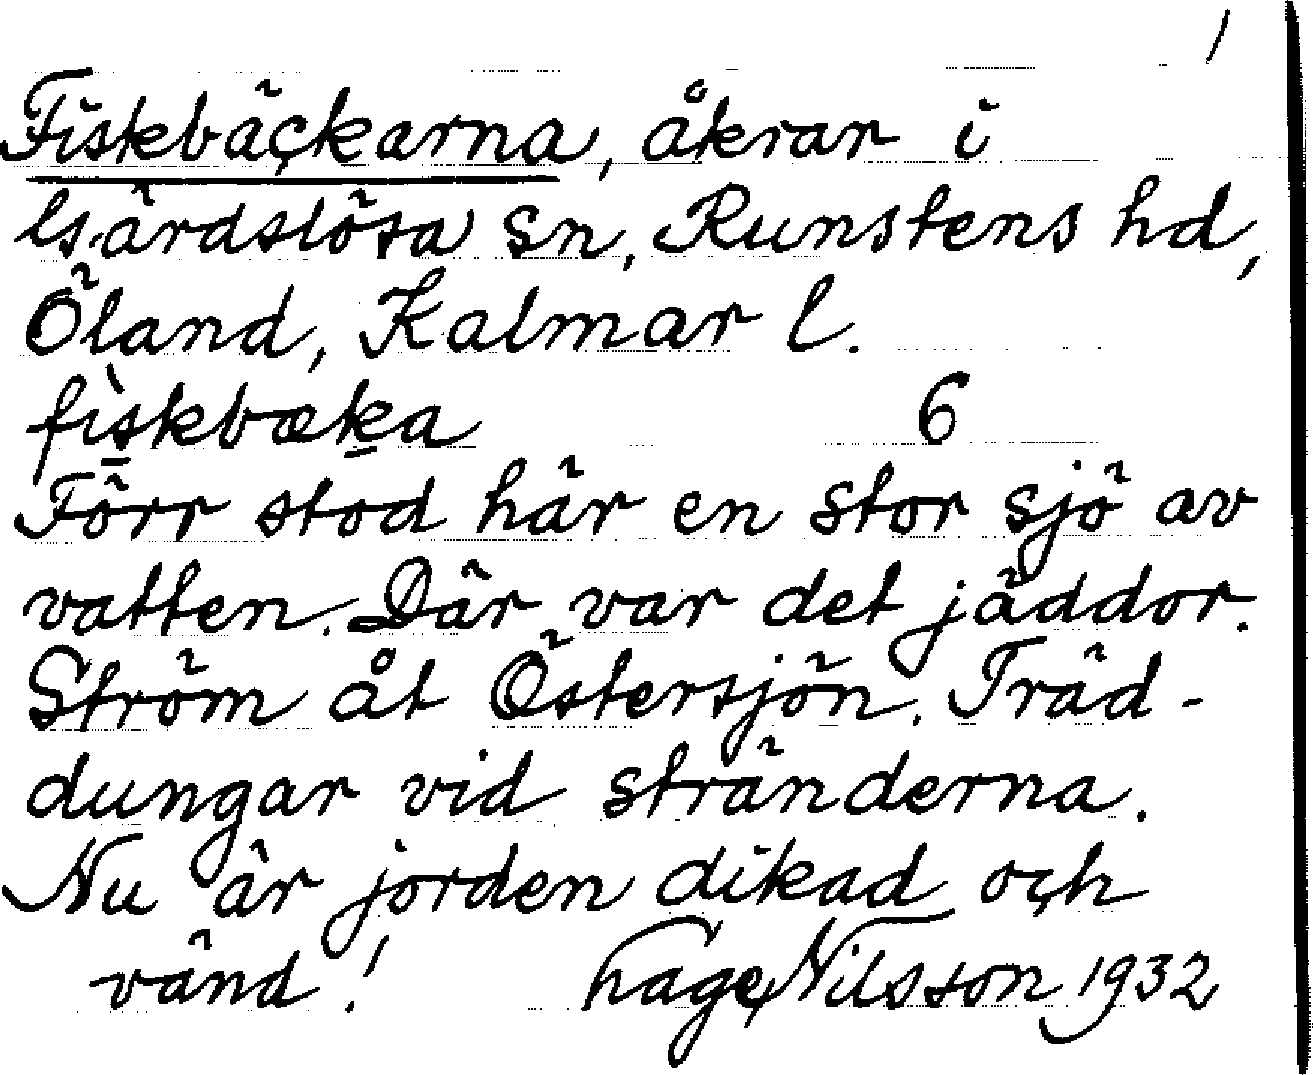 1
Fiskbäckarna, åkrar i
Gärdslösa sn, Runstens hd,
Öland, Kalmar l.
fiskbæka 6
Förr stod här en stor sjö av
vatten. Där var det jäddor.
Ström åt Östersjön. Träd-
dungar vid stränderna.
Nu är jorden dikad och
vänd! Nilsson 1932